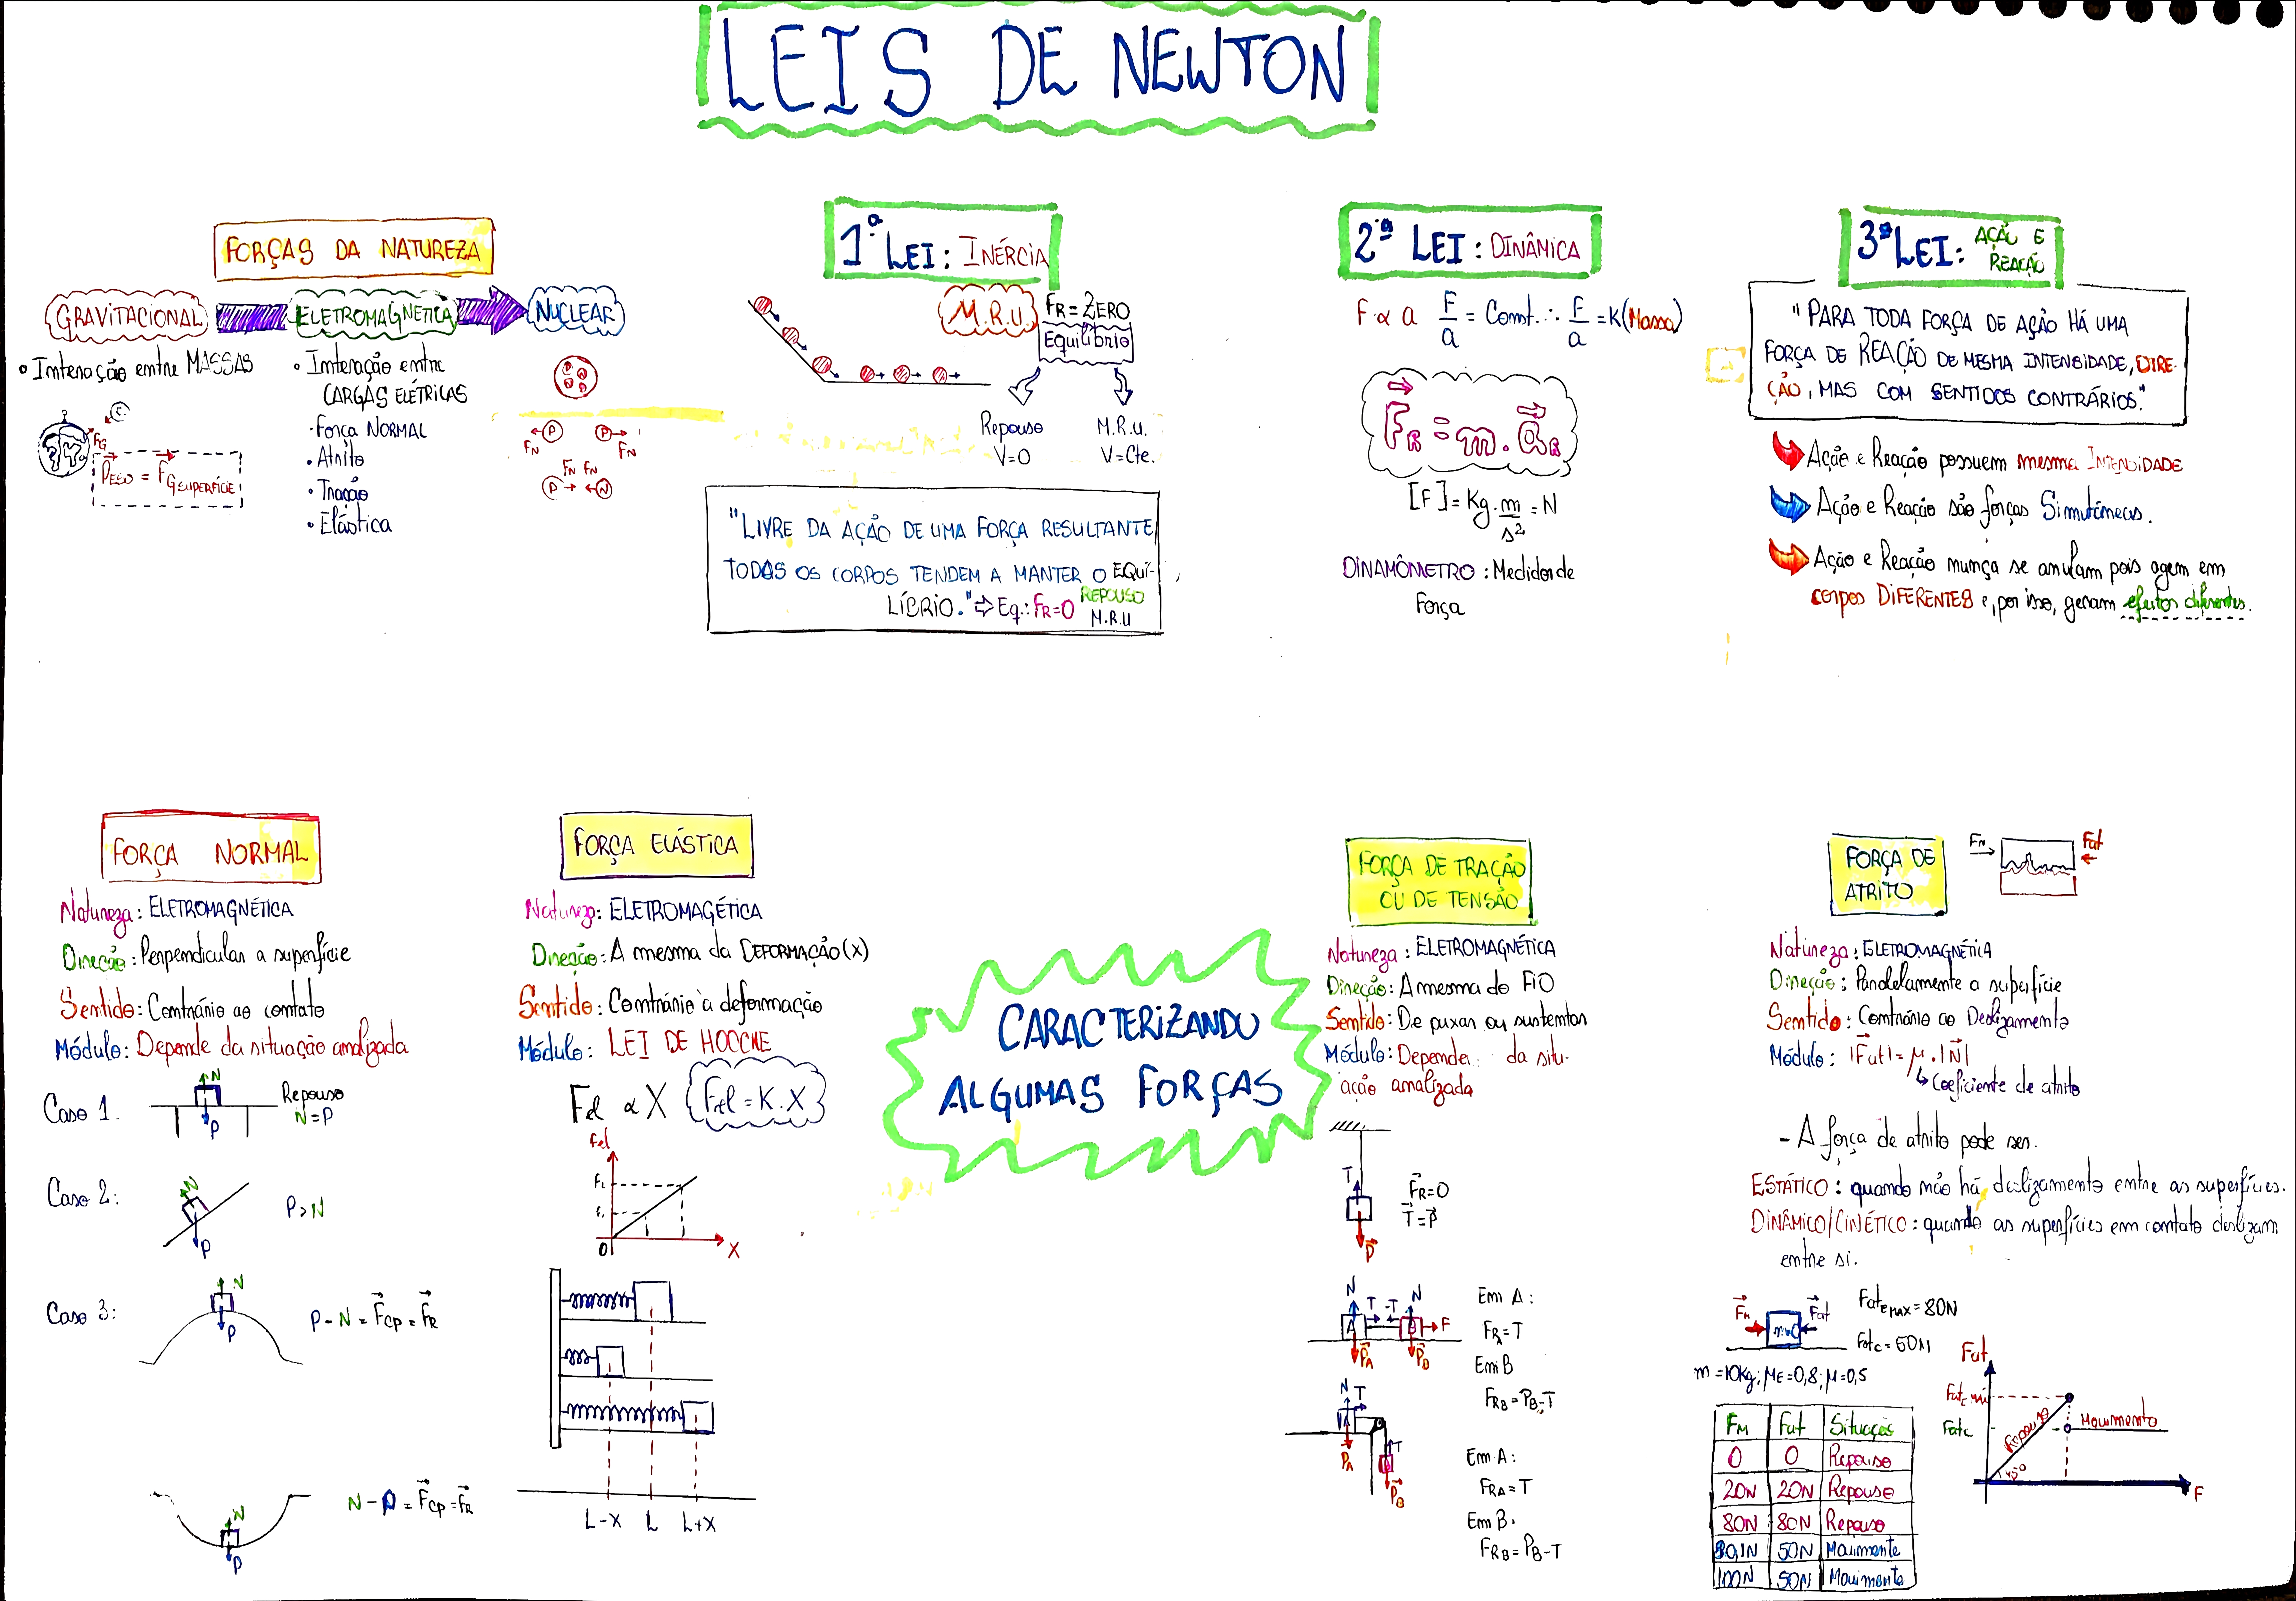 LEIS DE NEWTON
FORÇAS DA NATUREZA
GRAVITACIONAL
ELETROMAGNÉTICA
NUCLEAR
• Interação entre MASSAS
FG
PESO = FG SUPERFÍCIE
• Interação entre
CARGAS ELÉTRICAS
• Força NORMAL
• Atrito
• Tração
• Elástica
P P
FN FN
FN FN
P N
1ª LEI: INÉRCIA
M.R.U. FR = ZERO
Equilíbrio
Repouso M.R.U.
V=0 V=Cte.
"LIVRE DA AÇÃO DE UMA FORÇA RESULTANTE
TODOS OS CORPOS TENDEM A MANTER O EQUI-
LÍBRIO." ⇨ Eq.: FR=0 REPOUSO
M.R.U
2ª LEI: DINÂMICA
F ∝ a F/a = Const. ∴ F/a = K (Massa)
FR = m. aR
[F] = Kg. m/s² = N
DINAMÔMETRO: Medidor de
Força
3ª LEI: AÇÃO E
REAÇÃO
"PARA TODA FORÇA DE AÇÃO HÁ UMA
FORÇA DE REAÇÃO DE MESMA INTENSIDADE, DIRE-
ÇÃO, MAS COM SENTIDOS CONTRÁRIOS."
Ação e Reação possuem mesma INTENSIDADE
Ação e Reação são forças Simutâneas.
Ação e Reação nunça se anulam pois agem em
corpos DIFERENTES e, por isso, geram efeitos diferentes.
FORÇA NORMAL
Natureza: ELETROMAGNÉTICA
Direção: Perpendicular a superfície
Sentido: Contrário ao contato
Módulo: Depende da situação analizada
Caso 1. N Repouso
P N=P
Caso 2: N P>N
P
Caso 3: N P - N = Fcp = FR
P
N - P = Fcp = FR
N
P
FORÇA ELÁSTICA
Natureza: ELETROMAGÉTICA
Direção: A mesma da DEFORMAÇÃO (X)
Sentido: Contrário à deformação
Módulo: LEI DE HOOCKE
Fel ∝ X Fel = K. X
Fel
F2
F1
0 X
L-X L L+X
CARACTERIZANDO
ALGUMAS FORÇAS
FORÇA DE TRAÇÃO
OU DE TENSÃO
Natureza: ELETROMAGNÉTICA
Direção: A mesma do FIO
Sentido: De puxar ou sustentar
Módulo: Depender da situ-
ação analizada
T FR=0
T=P
P
N T -T N Em A:
A B F FRA=T
PA PB Em B
FRB=PB-T
N T
A T
PA B PB
Em A:
FRA=T
Em B.
FRB=PB-T
FORÇA DE
ATRITO
FM Fat
Natureza: ELETROMAGNÉTICA
Direção: Paralelamente a superfície
Sentido: Contrário ao Deslizamento
Módulo: |Fat| = μ.|N|
↳ Coeficiente de atrito
- A força de atrito pode ser.
ESTÁTICO: quando não há deslizamento entre as superfícies.
DINÂMICO/CINÉTICO: quando as superfícies em contato deslizam
entre si.
FM Fat Fate MAX = 80N
Fatc = 50N
m=10Kg; μE=0,8; μ=0,5
FM Fat Situação
0 0 Repouso
20N 20N Repouso
80N 80N Repouso
80,1N 50N Movimento
100N 50N Movimento
Fat
Fatc
Repouso
Movimento
45°
F